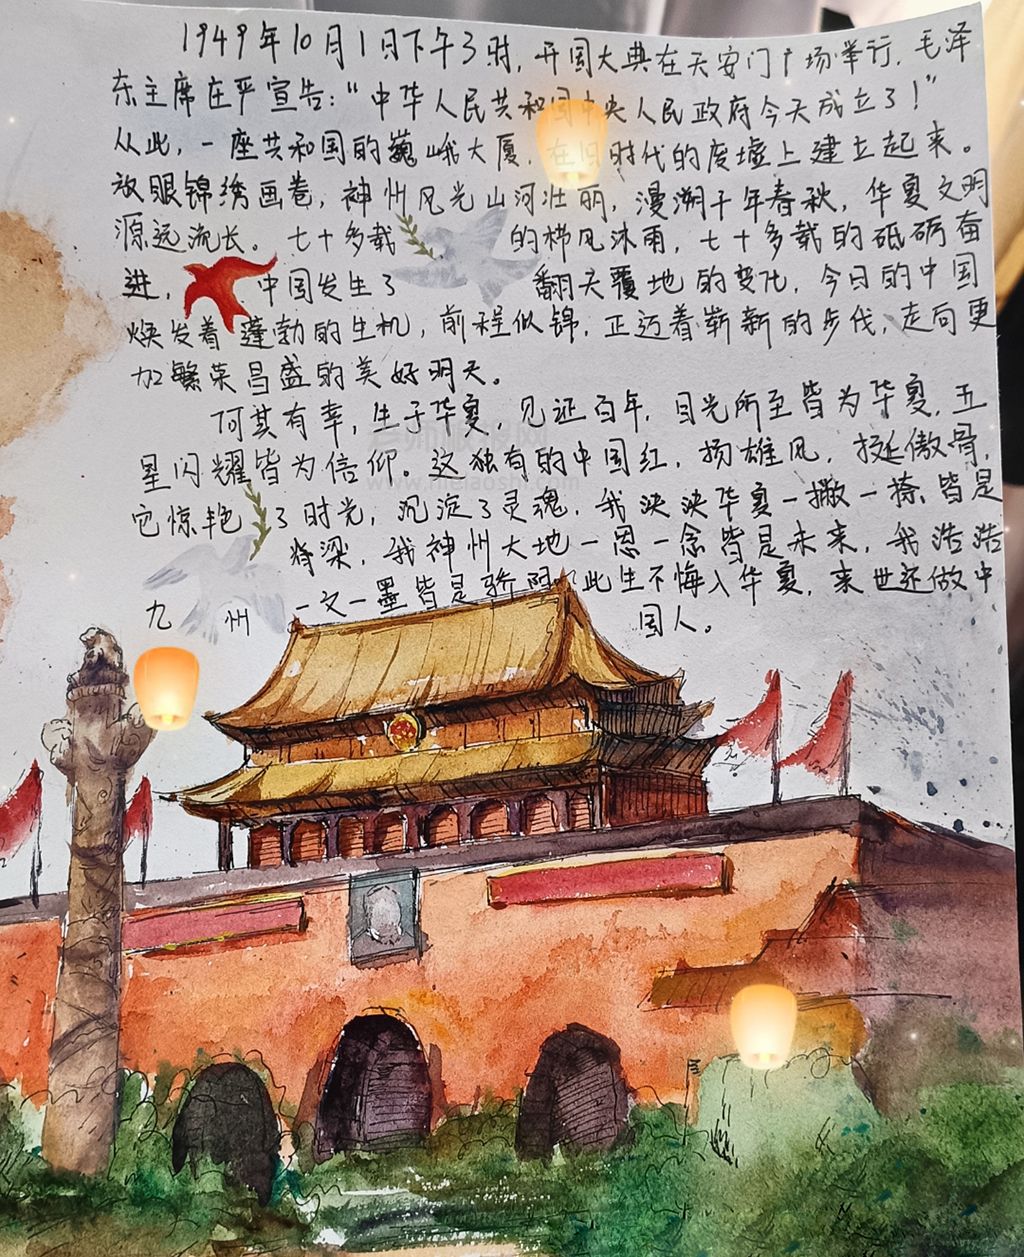 1949年10月1日下午3时，开国大典在天安门广场举行，毛泽
东主席庄严宣告：“中华人民共和国中央人民政府今天成立了！”
从此，一座共和国的巍峨大厦，在旧时代的废墟上建立起来。
放眼锦绣画卷，神州风光山河壮丽，漫溯千年春秋，华夏文明
源远流长。七十多载的栉风沐雨，七十多载的砥砺奋
进，中国发生了翻天覆地的变化，今日的中国
焕发着蓬勃的生机，前程似锦，正迈着崭新的步伐，走向更
加繁荣昌盛的美好明天。
何其有幸，生于华夏，见证百年，目光所至皆为华夏，五
星闪耀皆为信仰。这独有的中国红，扬雄风，挺傲骨，
它惊艳了时光，沉淀了灵魂，我泱泱华夏一撇一捺皆是
脊梁，我神州大地一恩一念皆是未来，我浩浩
九州一文一墨皆是骄阳，此生不悔入华夏，来世还做中
国人。
老师板报网
www.meiaoshi.com